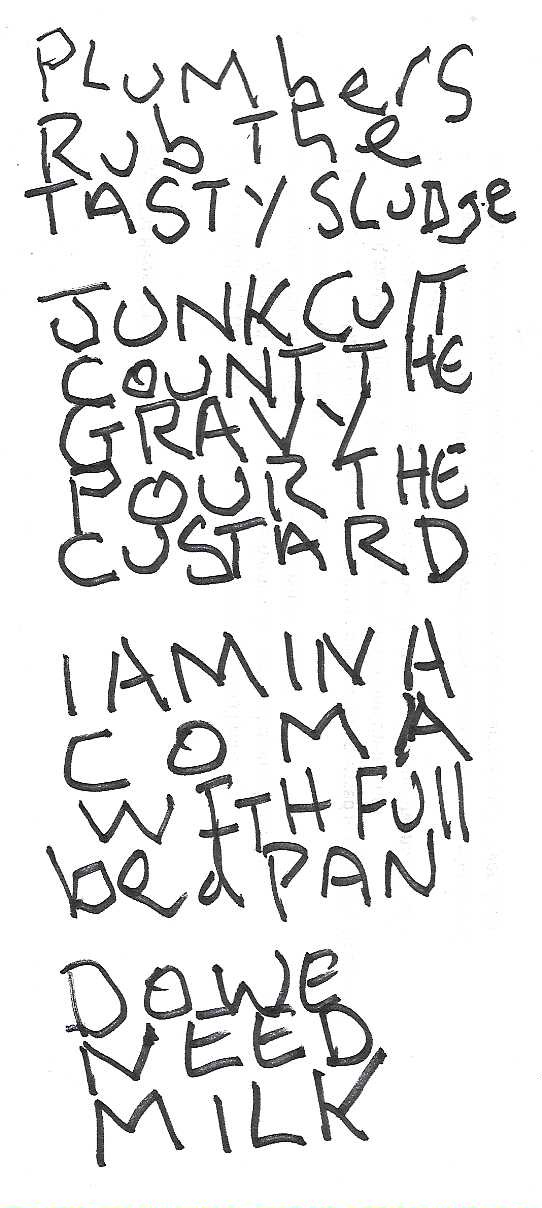 PLUMbers
Rub The
TASTY SLUDge
JUNK CULT
COUNT THE
GRAVY
POUR THE
CUSTARD
I AM IN A
COMA
WITH FUll
bed PAN
DO WE
NEED
MILK